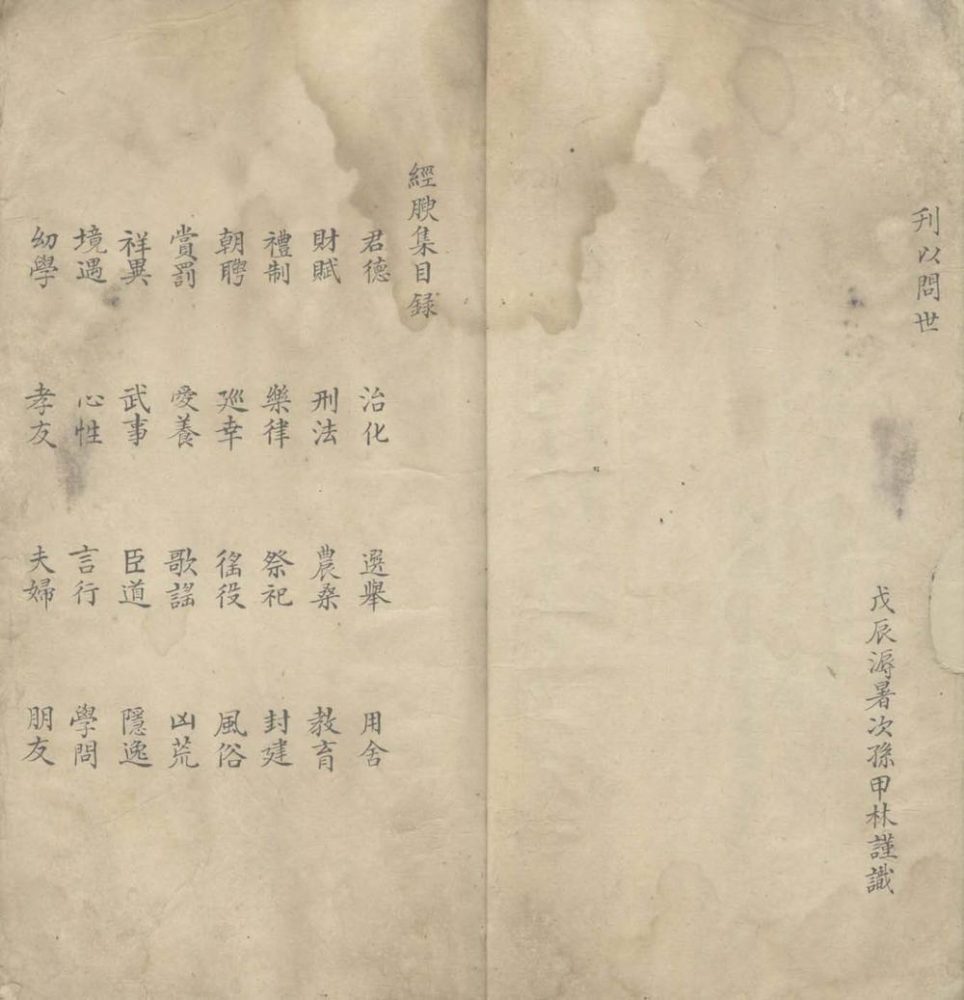 刊以問世
戊辰溽暑次孫甲林謹識
經腴集目録
君德 治化 選舉 用舍
財賦 刑法 農桑 教育
禮制 樂律 祭祀 封建
朝聘 廵幸 徭役 風俗
賞罰 愛養 歌謡 凶荒
祥異 武事 臣道 隱逸
境遇 心性 言行 學問
幼學 孝友 夫婦 朋友